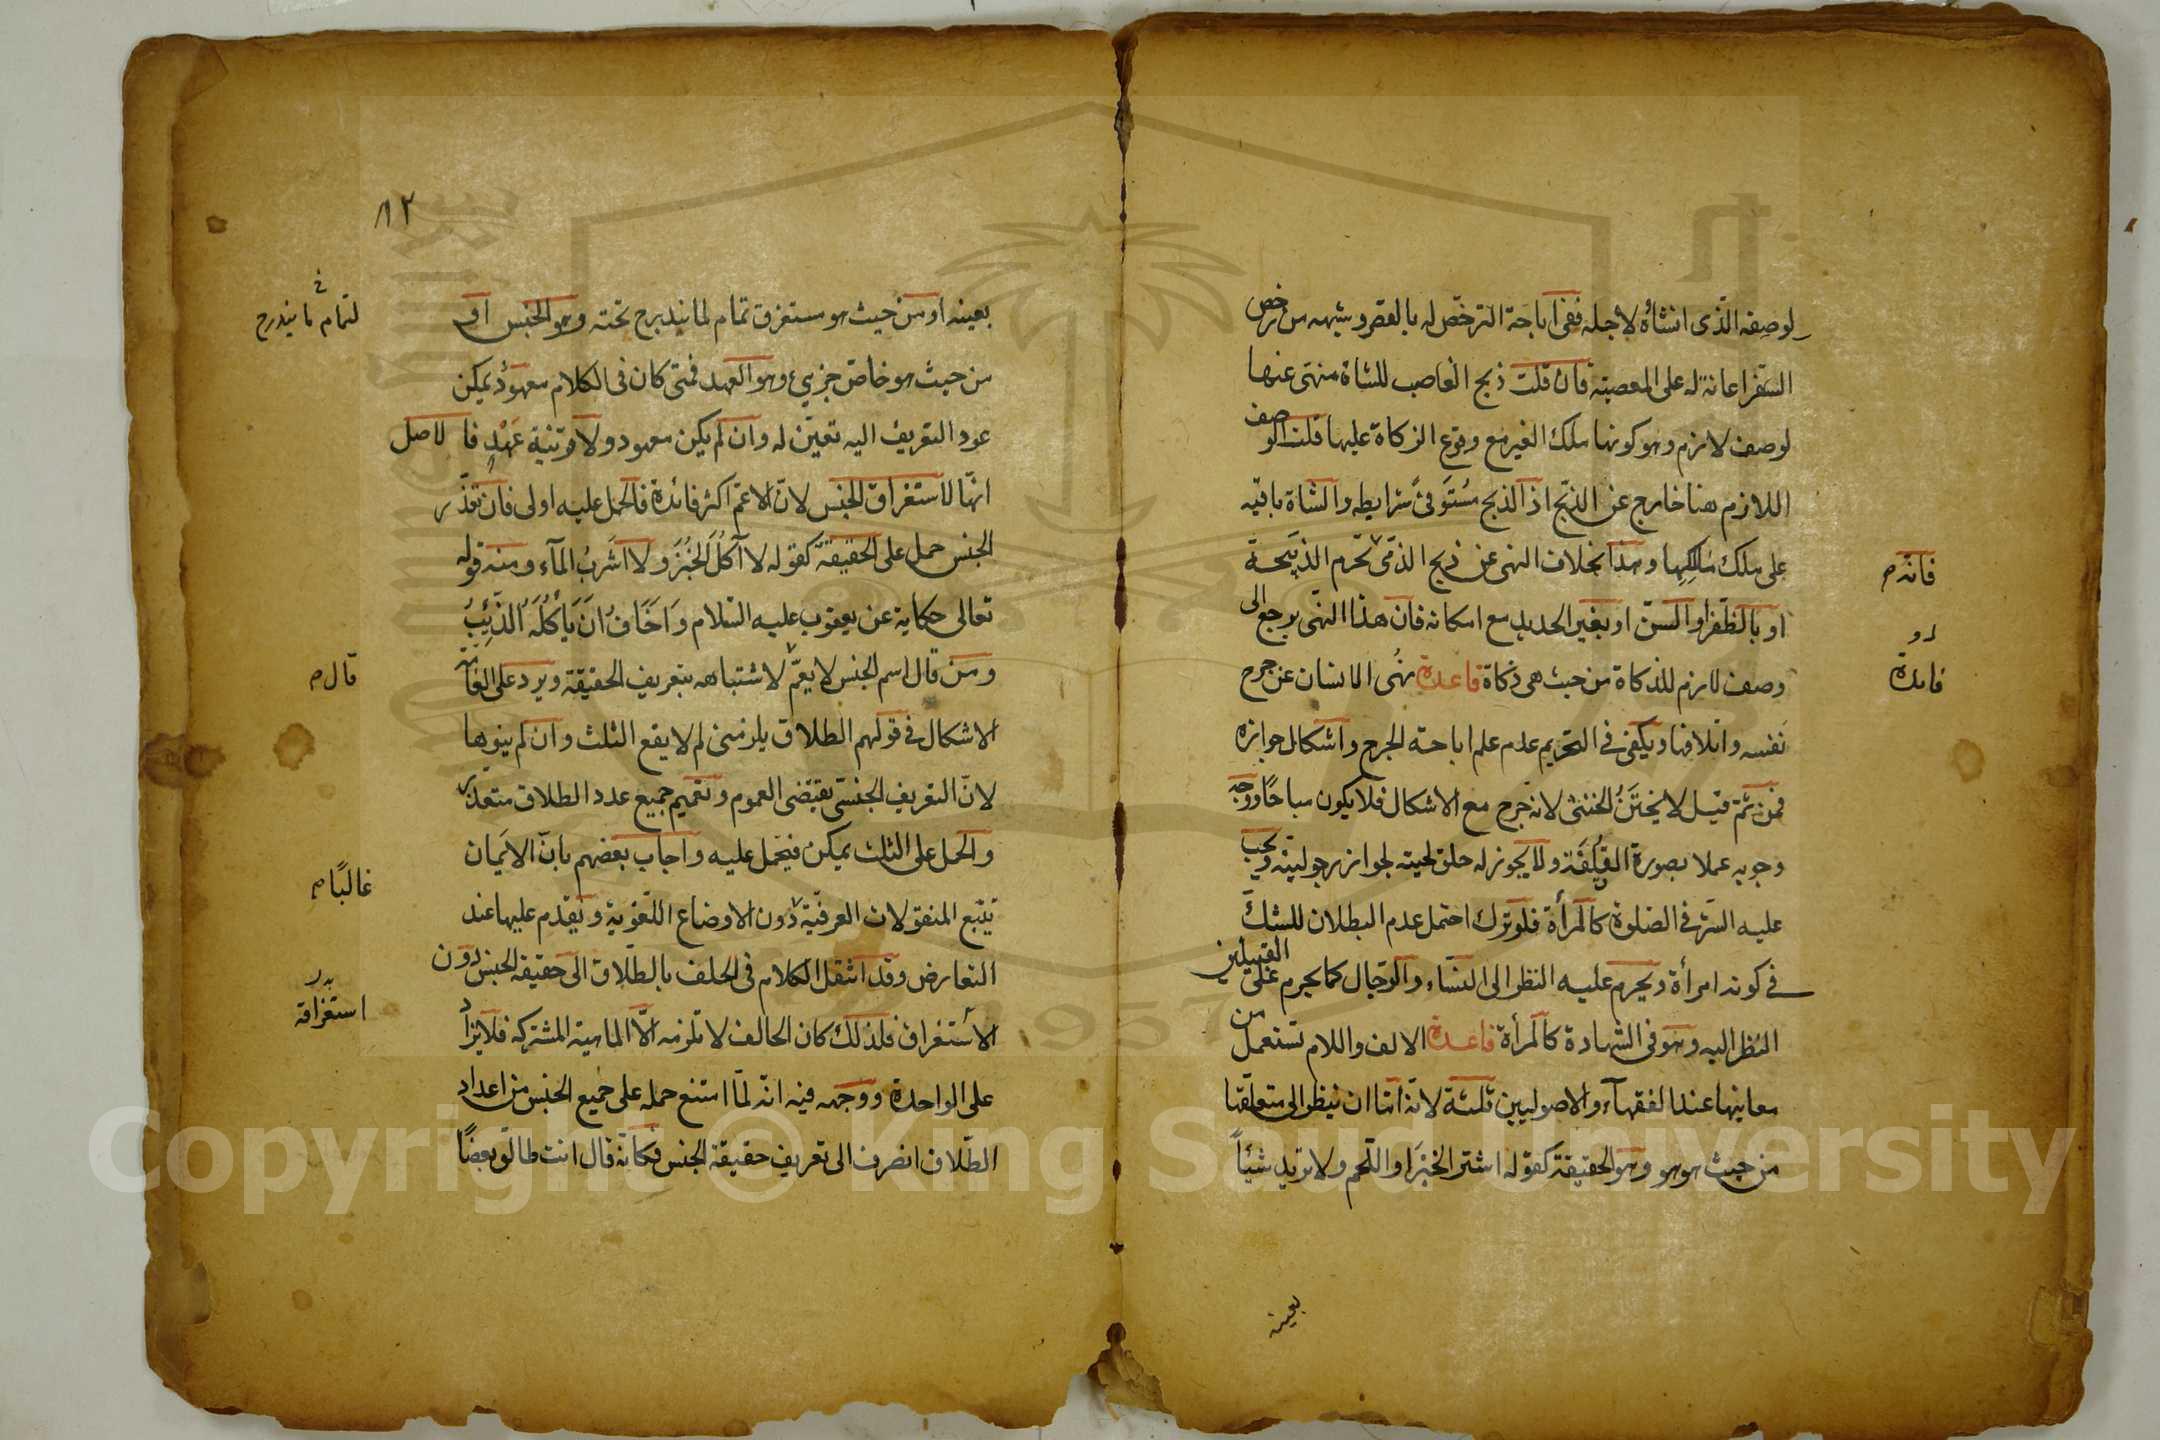 لوصفه الذى انشأه لاجله ففى اباحة الترخص له بالقصر وشبهه من رخص
السفر اعانة له على المعصية فان قلت ذبح الغاصب للشاة منهى عنها
لوصف لازم وهو كونها ملك الغير مع وقوع الزكاة عليها قلت الوصف
اللازم هنا خارج عن الذبح اذ الذبح مستوفى شرايطه والشاة باقية
على ملك مالكها وهذا بخلاف النهى عن ذبح الذمى تحرم الذبيحة
فانه م
او بالظفر والسن او بغير الحديد مع امكانه فان هذا النهى يرجع الى
وصف لازم للذكاة من حيث هى ذكاة قاعدة نهى الانسان عن جرح
فائدة
نفسه واتلافها ويكفى فى التحريم عدم علم اباحة الجرح واشكال جوازه
فمن ثم قيل لا يختتن الخنثى لانه جرح مع الاشكال فلا يكون مباحا ووجه
وجوبه عملا بصورة القلفة ولا يجوز له حلق لحيته لجواز رجوليته ويجب
عليه الستر فى الصلوة كالمرأة فلو ترك احتمل عدم البطلان للشك
فى كونه امرأة ويحرم عليه النظر الى النساء والرجال كما يحرم على القبيلين
النظر اليه وهو فى الشهادة كالمرأة قاعدة الالف واللام تستعمل من
معانيها عند الفقهآء والاصوليين ثلثة لانه اما ان ينظر الى متعلقها
من حيث هو هو وهو الحقيقة كقوله اشتر الخبز او اللحم ولا تريد شيئاً
بعينه
٨٢
بعينه او من حيث هو مستغرق تمام لما يندرج تحته وهو الجنس او
لتمام ما يندرج خ
من حيث هو خاص جزيئ وهو العهد فمتى كان فى الكلام معهود يمكن
عود التعريف اليه تعين له وان لم يكن معهود ولا قرينة عهد فالاصل
انها لاستغراق الجنس لان الاعم اكثر فائدة فالحمل عليه اولى فان تعذر
الجنس حمل على الحقيقة كقوله لا آكل الخبز ولا اشرب المآء ومنه قوله
تعالى حكاية عن يعقوب عليه السلام واخاف ان يأكله الذئب
ومن قال اسم الجنس لا يعم لاشتباهه بتعريف الحقيقة ويرد على القائل
قال م
الاشكال فى قولهم الطلاق يلزمنى لم لا يقع الثلث وان لم ينوها
لان التعريف الجنسى يقتضى العموم وتعميم جميع عدد الطلاق متعذر
والحمل على الثلث يمكن فيحمل عليه واجاب بعضهم بان الايمان
غالبًا م
تتبع المنقولات العرفية دون الاوضاع اللغوية وتقدم عليها عند
التعارض وقد انتقل الكلام فى الحلف بالطلاق الى حقيقة الجنس دون
استغراقه
الاستغراق فلذلك كان الحالف لا تلزمه الا الماهية المشتركة فلا يزاد
على الواحدة ووجهه فيه انه لما امتنع حمله على جميع الجنس من اعداد
الطلاق انصرف الى تعريف حقيقة الجنس فكانه قال انت طالق بعضًا
Copyright © King Saud University
1957